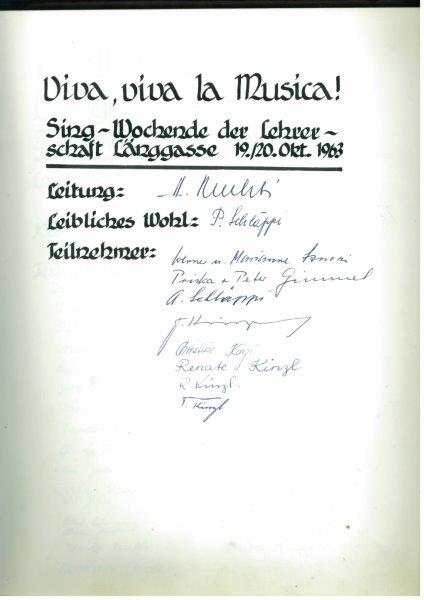 Viva, viva la Musica!
Sing-Wochende der Lehrer-
schaft Länggasse 19./20. Okt. 1963
Leitung:
Leibliches Wohl: P. Schläppi
Teilnehmer: Werner u. Marianne
Priska + Peter Gimmel
A. Schläppi
Kinzl
Renate Kinzl
R. Kinzl.
T. Kinzl